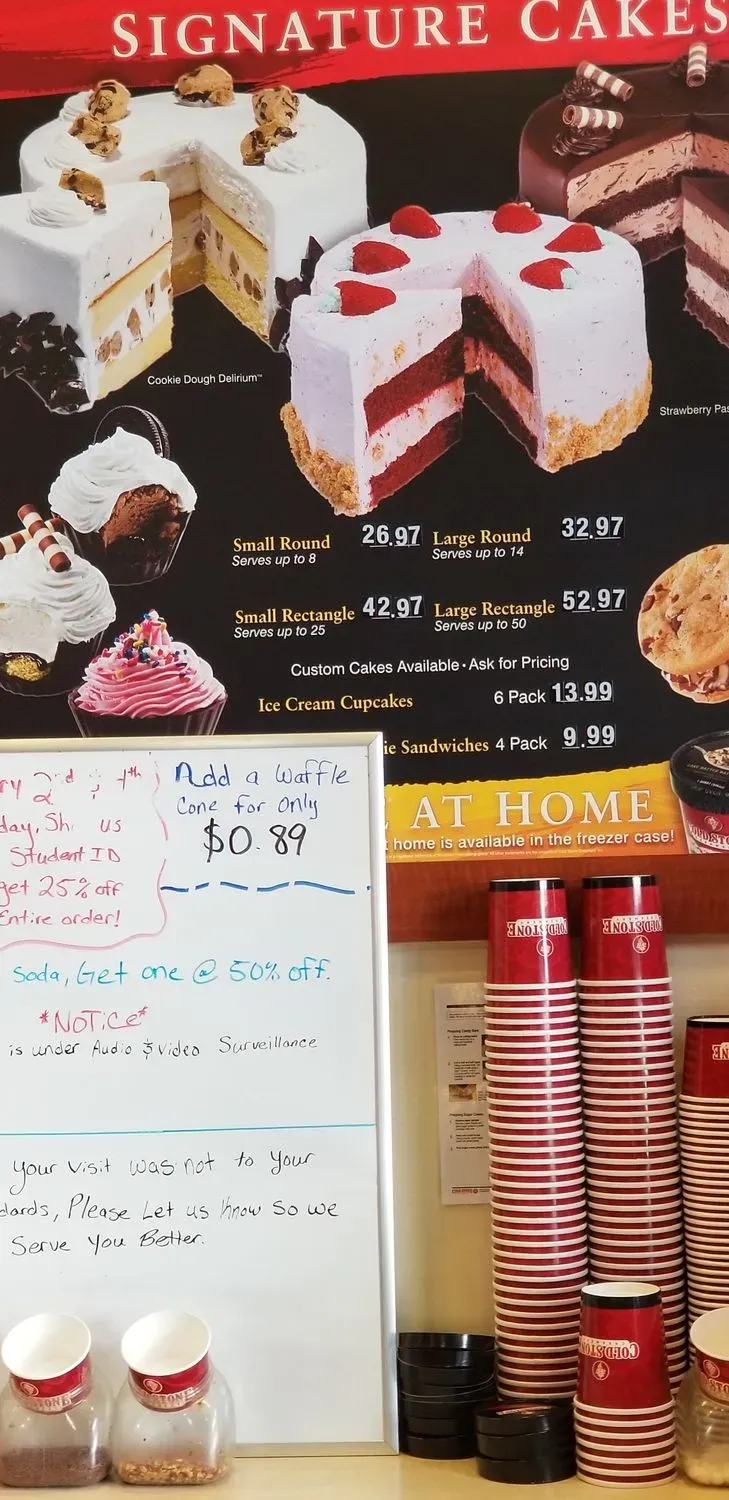 SIGNATURE CAKES
Cookie Dough Delirium™
Strawberry Pas
Small Round 26.97 Large Round 32.97
Serves up to 8 Serves up to 14
Small Rectangle 42.97 Large Rectangle 52.97
Serves up to 25 Serves up to 50
Custom Cakes Available • Ask for Pricing
Ice Cream Cupcakes 6 Pack 13.99
ie Sandwiches 4 Pack 9.99
E AT HOME
t home is available in the freezer case!
ry 2nd & 4th
day, Sh us
Student ID
get 25% off
Entire order!
Add a Waffle
Cone for Only
$0.89
Soda, Get one @ 50% off.
*NOTICE*
is under Audio & Video Surveillance
your visit was not to your
dards, Please Let us know so we
Serve you Better.
COLD STONE
COLD STONE
COLD STONE
STONE
STONE